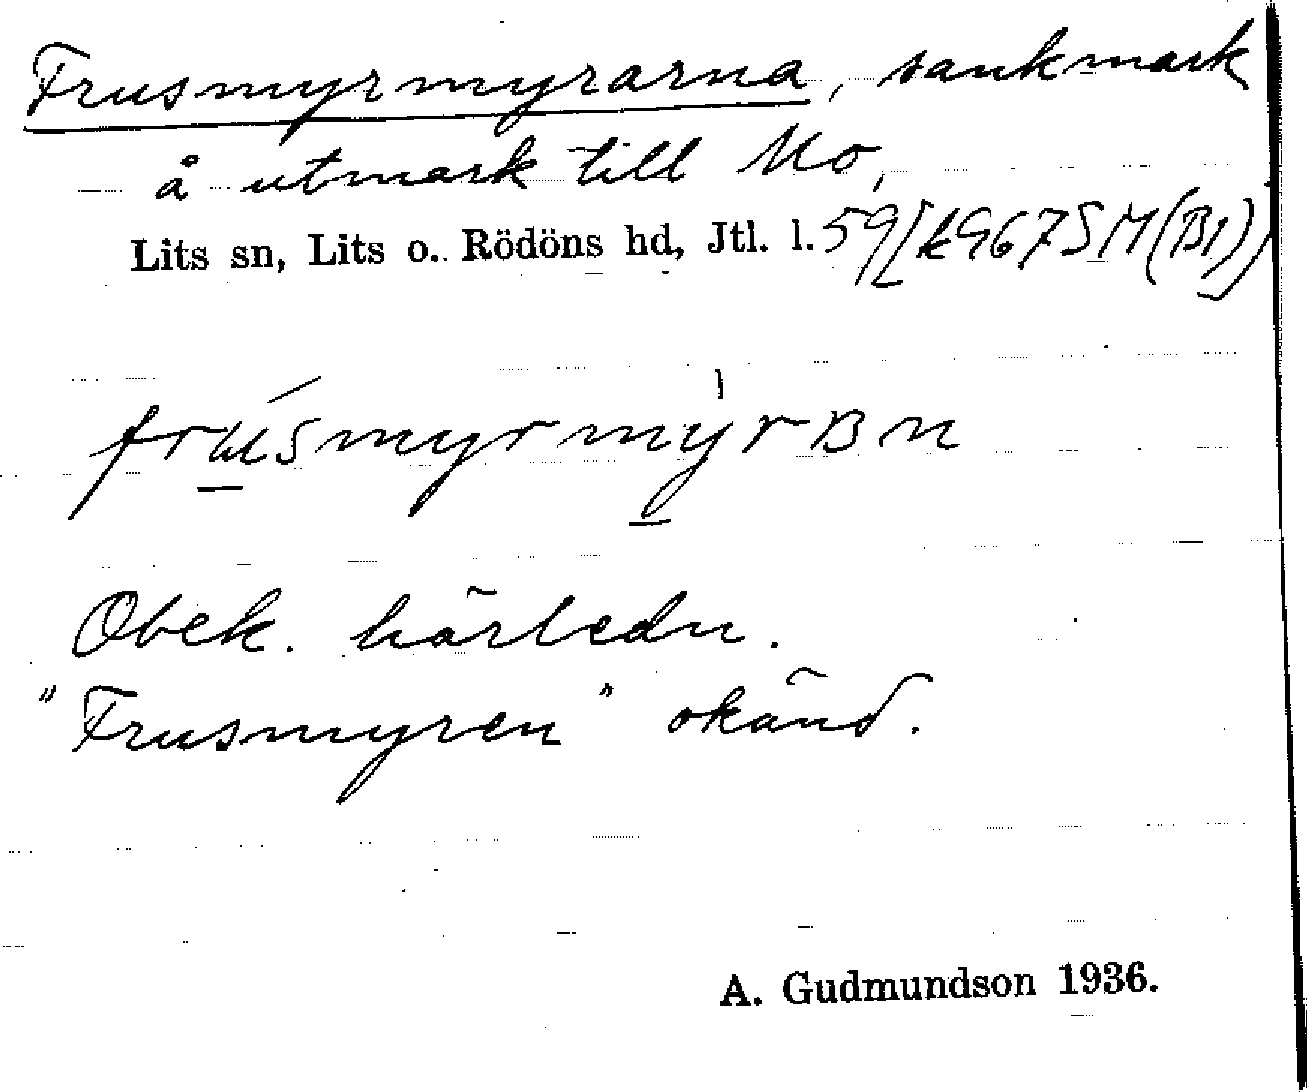 Frusmyrmyrarna, sankmark
å utmark till Mo,
Lits sn, Lits o. Rödöns hd, Jtl. l. 59
frusmyrmyrBn
Obek. härledn.
"Frusmyren" okänd.
A. Gudmundson 1936.